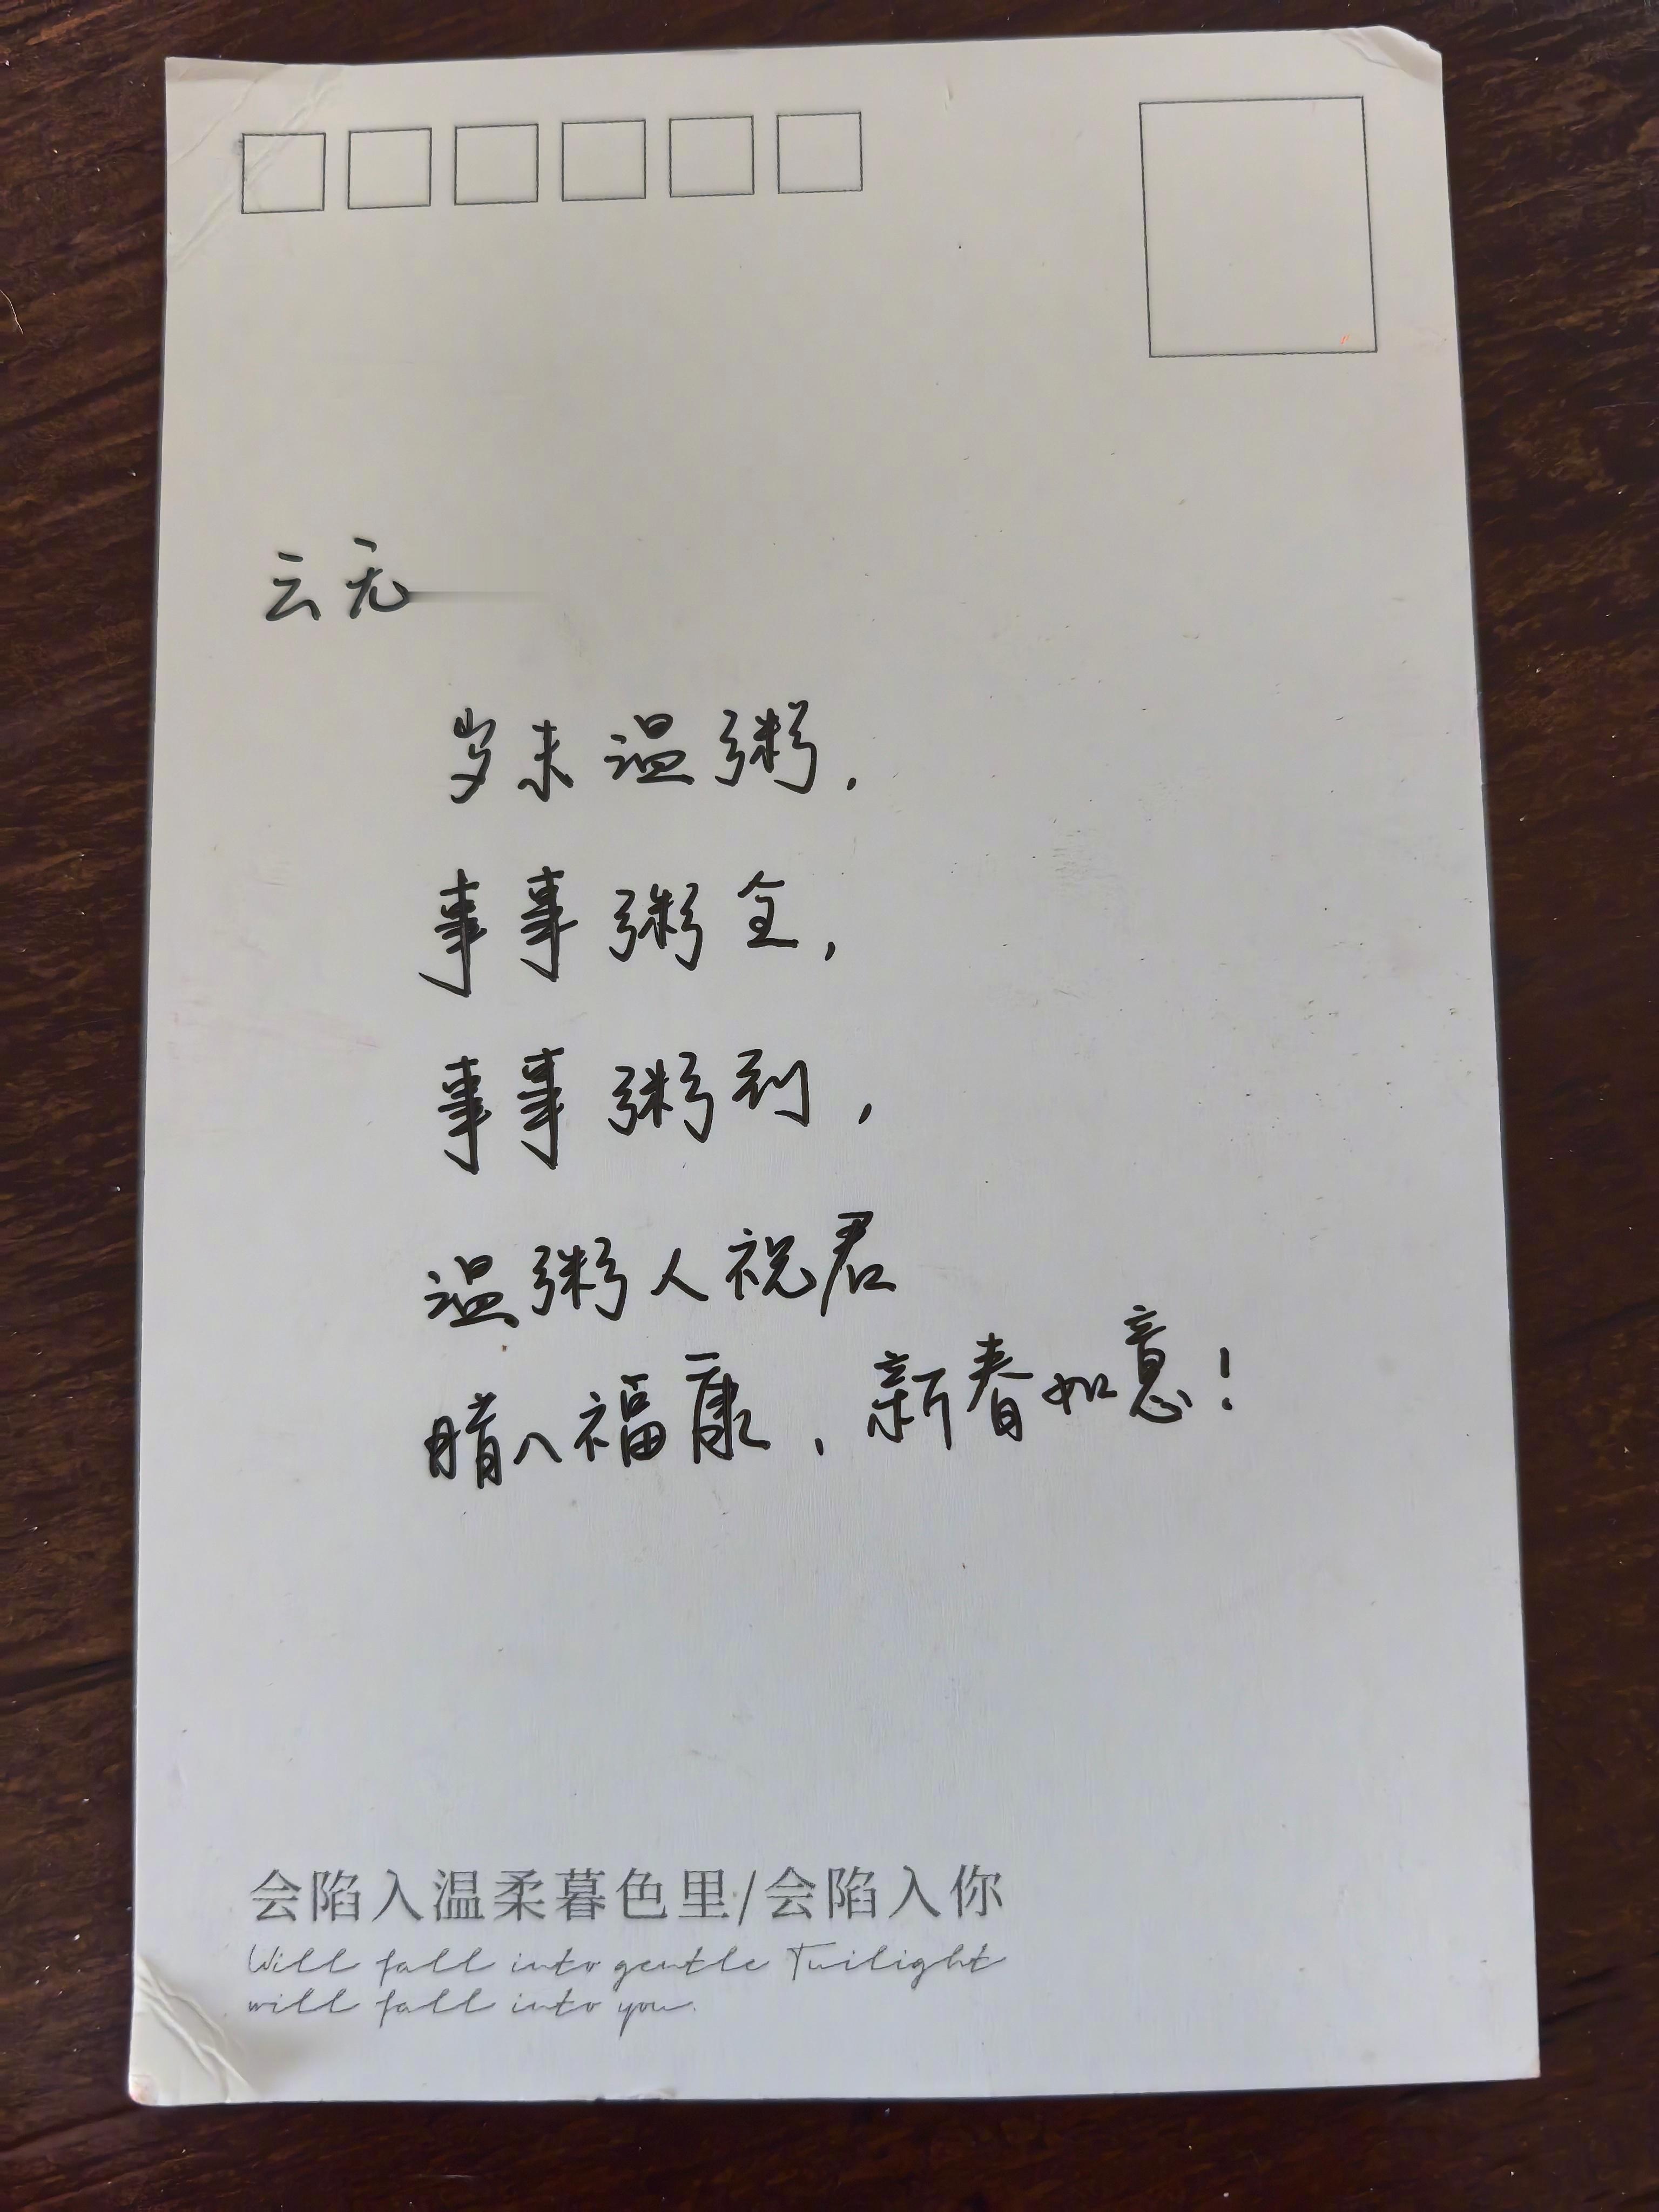 云无
岁末温粥,
事事粥全,
事事粥到,
温粥人祝君
腊八福康,新春如意!
会陷入温柔暮色里/会陷入你
Will fall into gentle Twilight
will fall into you.